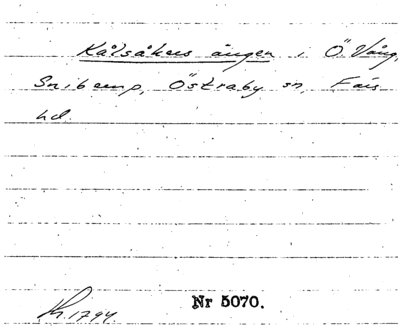 Kålsåkers ängen i Ö Vång,
Snibemp, Östraby sn, Färs
hd.
Kr. 1794.
Nr 5070.